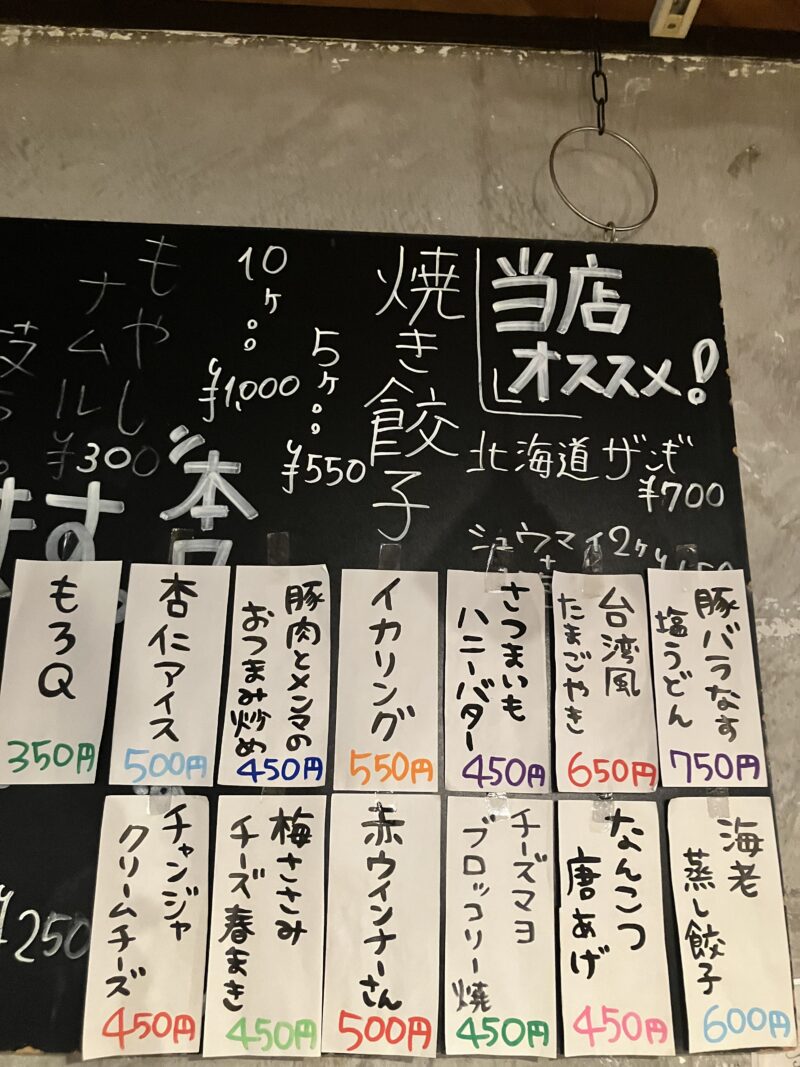 当店
オススメ!
北海道ザンギ
¥700
シュウマイ2ヶ
焼き餃子
5ヶ。。
¥550
10ヶ。。
¥1,000
もやし
ナムル
¥300
ます。
豚バラなす
塩うどん
750円
台湾風
たまごやき
650円
さつまいも
ハニーバター
450円
イカリング
550円
豚肉とメンマの
おつまみ炒め
450円
杏仁アイス
500円
もろQ
350円
海老
蒸し餃子
600円
なんこつ
唐あげ
450円
チーズマヨ
ブロッコリー焼
450円
赤ウインナーさん
500円
梅ささみ
チーズ春まき
450円
チャンジャ
クリームチーズ
450円
¥250